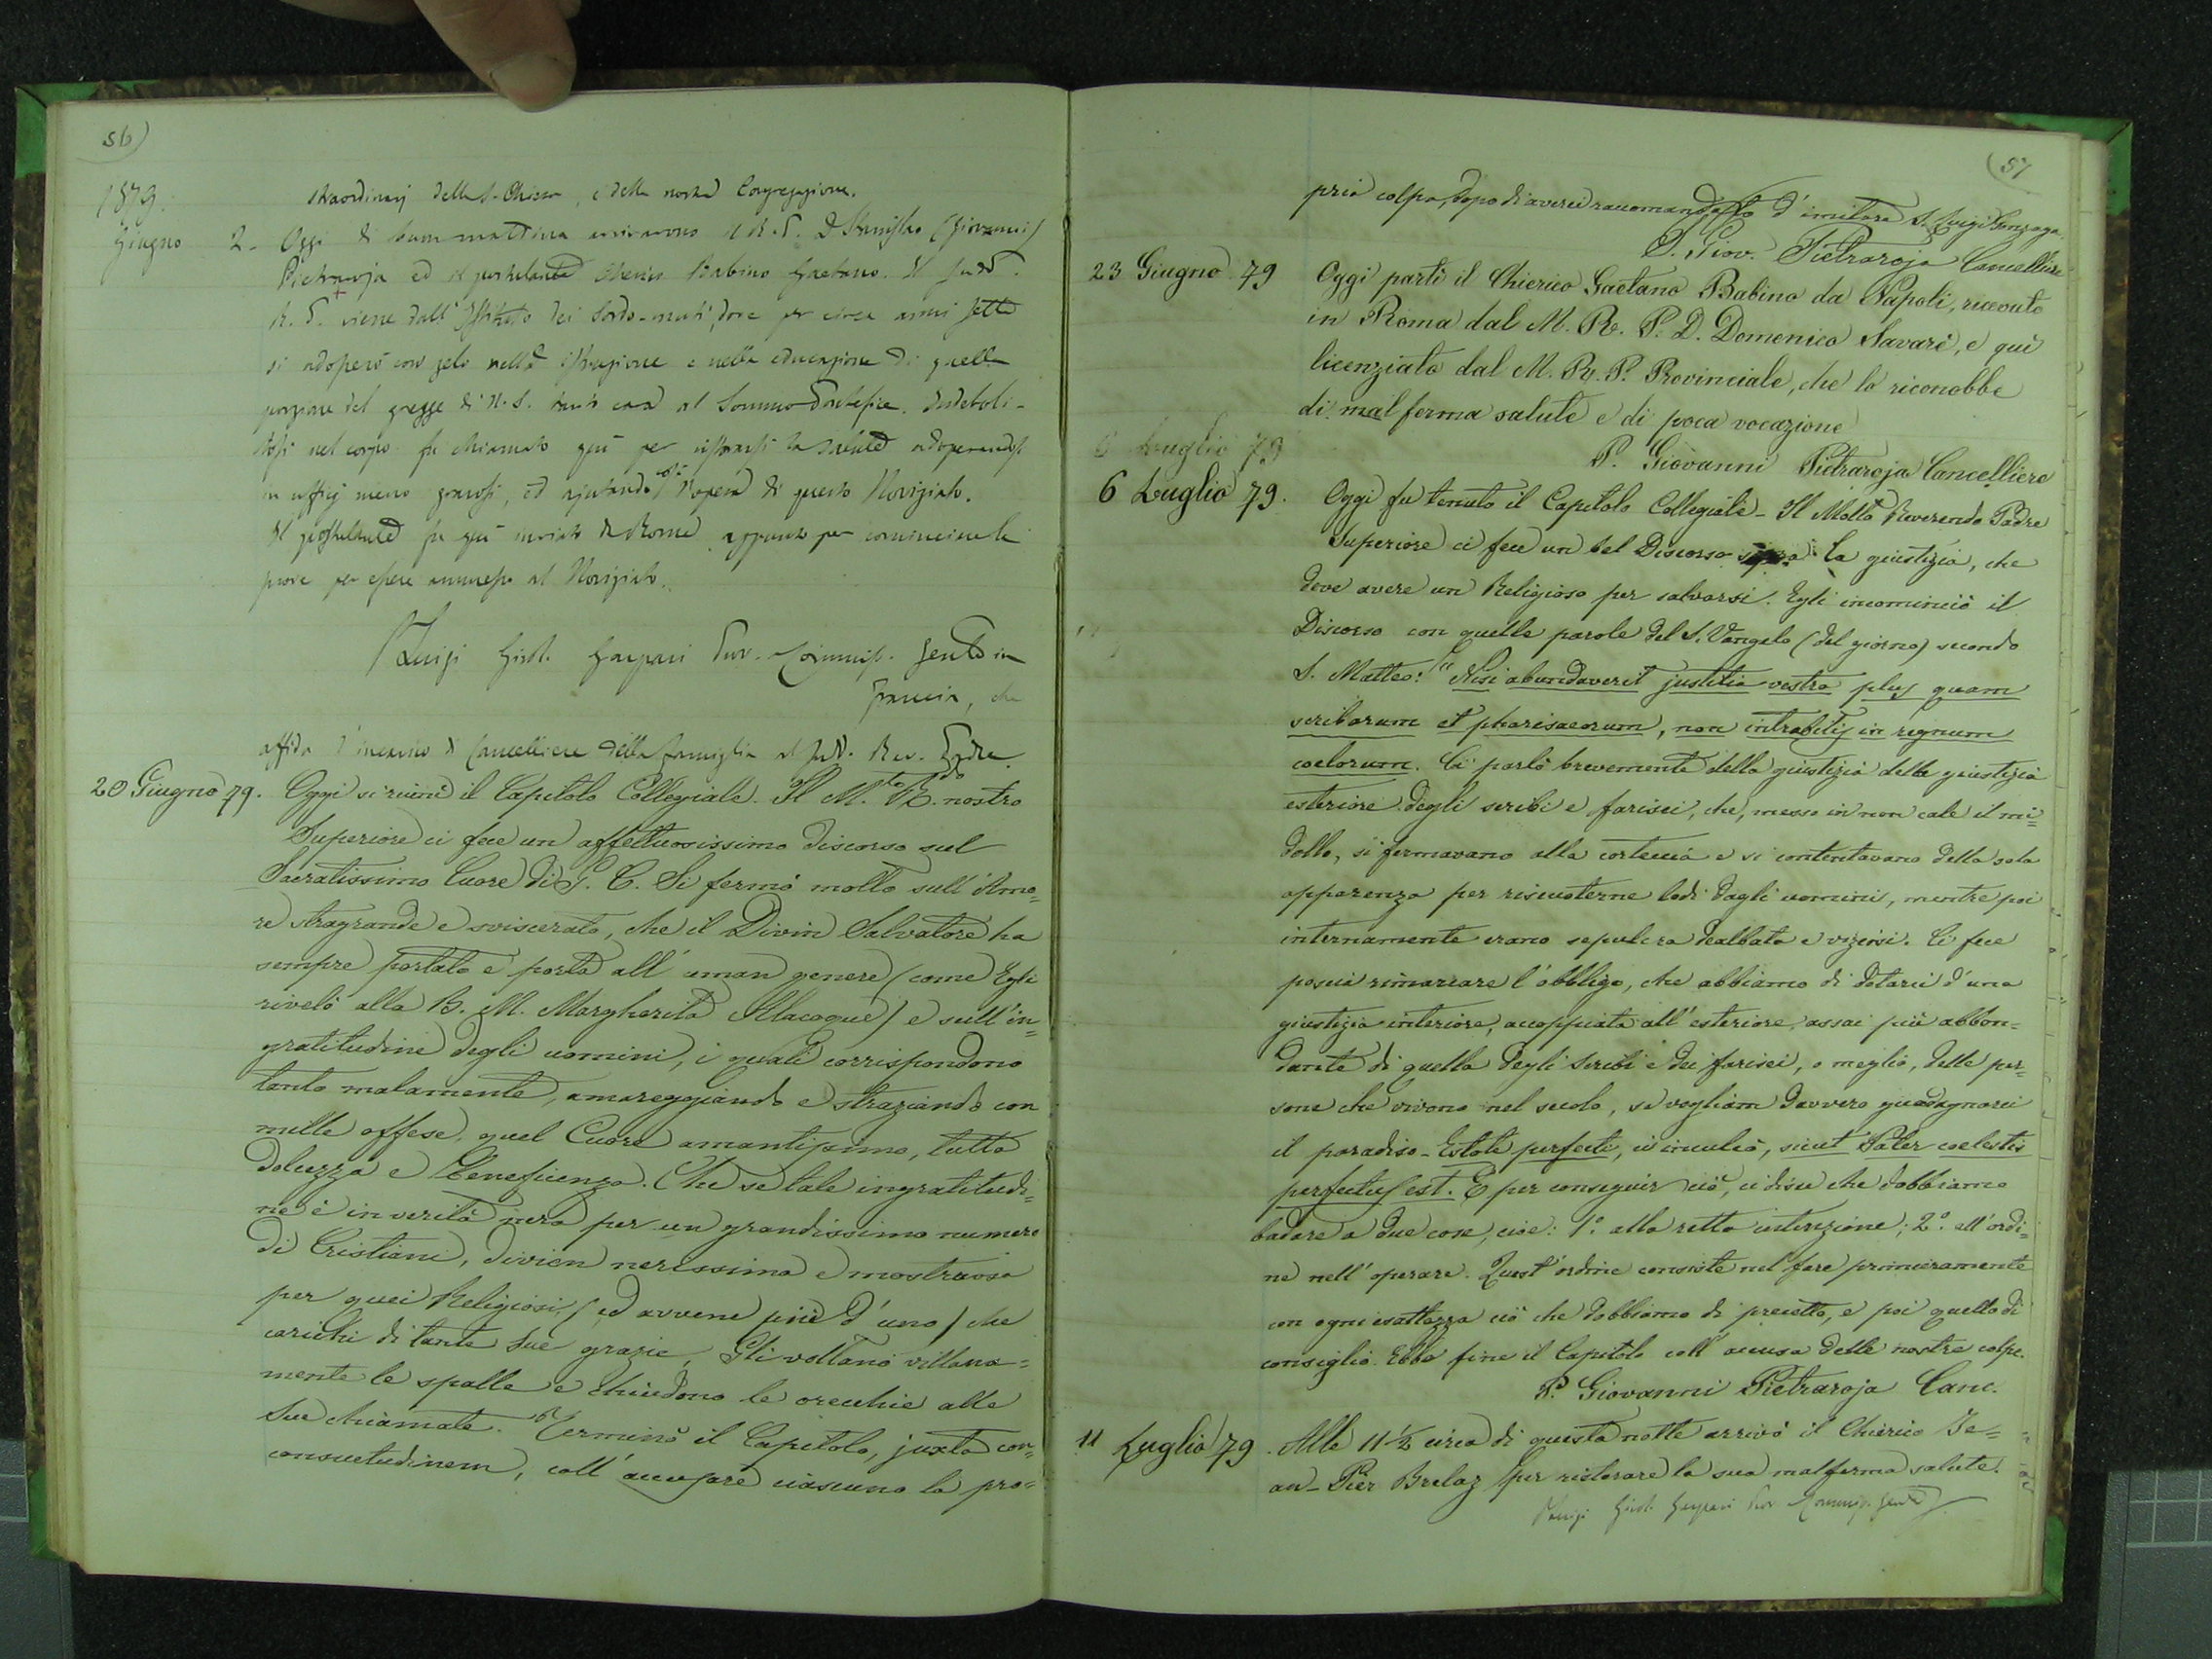 56)
1879.
straordinarj della S. Chiesa, e della nostra Congregazione.
Giugno 2- Oggi di buon mattina arrivarono il R. P. D. Stanislao (Giovanni)
Pietraroja ed il postulante Babino Gaetano. Il sudd.
R. P. viene dall' Istituto dei Sordo-muti, dove per circa anni sette
si adoperò con zelo nella istruzione e nella educazione di quella
porzione del gregge di N. S. tanto cara al Sommo Pontefice. Indeboli-
tosi nel corpo fu chiamato quì per ristorarsi la salute adoperandosi
in ufficj meno gravosi, ed ajutando l'opera di questo Noviziato.
Il postulante fu quì inviato da Roma appunto per cominciare le
prove per essere ammesso al Noviziato.
Luigi Gaspari Prov. Commiss. Gente in
Francia, che
affida l'incarico di Cancelliere della famiglia al sud. Rev. Padre.
20 Giugno 79. Oggi si riunì il Capitolo Collegiale. Il M.to R.do nostro
Superiore ci fece un affettuosissimo discorso sul
Sacratissimo Cuore di G. C. Si fermò molto sull' Amo=
re stragrande e sviscerato, che il Divin Salvatore ha
sempre portato e porta all' uman genere (come Egli
rivelò alla B. M. Margherita Alacoque) e sull' in=
gratitudine degli uomini, i quali corrispondono
tanto malamente, amareggiando e straziando con
mille offese, quel Cuore amantissimo, tutto
dolcezza e beneficenza. Che se tale ingratitudi=
ne è in verità nera per un grandissimo numero
di Cristiani, divien nerissima e mostruosa
per quei Religiosi, (ed avvene più d' uno) che
carichi di tante Sue grazie, Gli voltano villana=
mente le spalle e chiudono le orecchie alle
Sue chiamate. Terminò il Capitolo, juxta con=
consuetudinem, coll' accusare ciascuno la pro=
(57
pria colpa, dopo di averci raccomandato d' imitare S. Luigi Gonzaga.
P. Giov. Pietraroja Cancelliere
23 Giugno 79 Oggi partì il Chierico Gaetano Babino da Napoli, ricevuto
in Roma dal M. R. P. D. Domenico Savarè, e quì
licenziato dal M. R. P. Provinciale, che lo riconobbe
di mal ferma salute e di poca vocazione
P. Giovanni Pietraroja Cancelliere
6 Luglio 79
6 Luglio 79. Oggi fu tenuto il Capitolo Collegiale - Il Molto Reverendo Padre
Superiore ci fece un bel Discorso sopra la giustizia, che
deve avere un Religioso per salvarsi. Egli incominciò il
Discorso con quelle parole del S. Vangelo (del giorno) secondo
S. Matteo: "Nisi abundaverit justitia vestra plus quam
scribarum et pharisaeorum, non intrabitis in regnum
coelorum. Ci parlò brevemente della giustizia della giustizia
esteriore degli scribi e farisei, che, messo in non cale il mi=
dollo, si fermavano alla corteccia e si contentavano della sola
apparenza per riscuoterne lodi dagli uomini, mentre poi
internamente erano sepulcra dealbata e viziosi. Ci fece
poscia rimarcare l' obbligo, che abbiamo di dotarci d' una
giustizia interiore, accoppiata all' esteriore, assai più abbon=
dante di quella degli scribi e dei farisei, o meglio, delle per=
sone che vivono nel secolo, se vogliam davvero guadagnarci
il paradiso - Estote perfecti, ci inculcò, sicut Pater coelestis
perfectus est. E per conseguir ciò, ci disse che dobbiamo
badare a due cose, cioè: 1.° alla retta intenzione; 2.° all' ordi=
ne nell' operare. Quest' ordine consiste nel fare primieramente
con ogni esattezza ciò che dobbiamo di precetto, e poi quello di
consiglio. Ebbe fine il Capitolo coll' accusa delle nostre colpe.
P. Giovanni Pietraroja Canc.
11 Luglio 79. Alle 11 ½ circa di questa notte arrivò il Chierico Je=
an-Pier Brelaz per ristorare la sua malferma salute.
Luigi Gaspari Prov Commiss. Gente